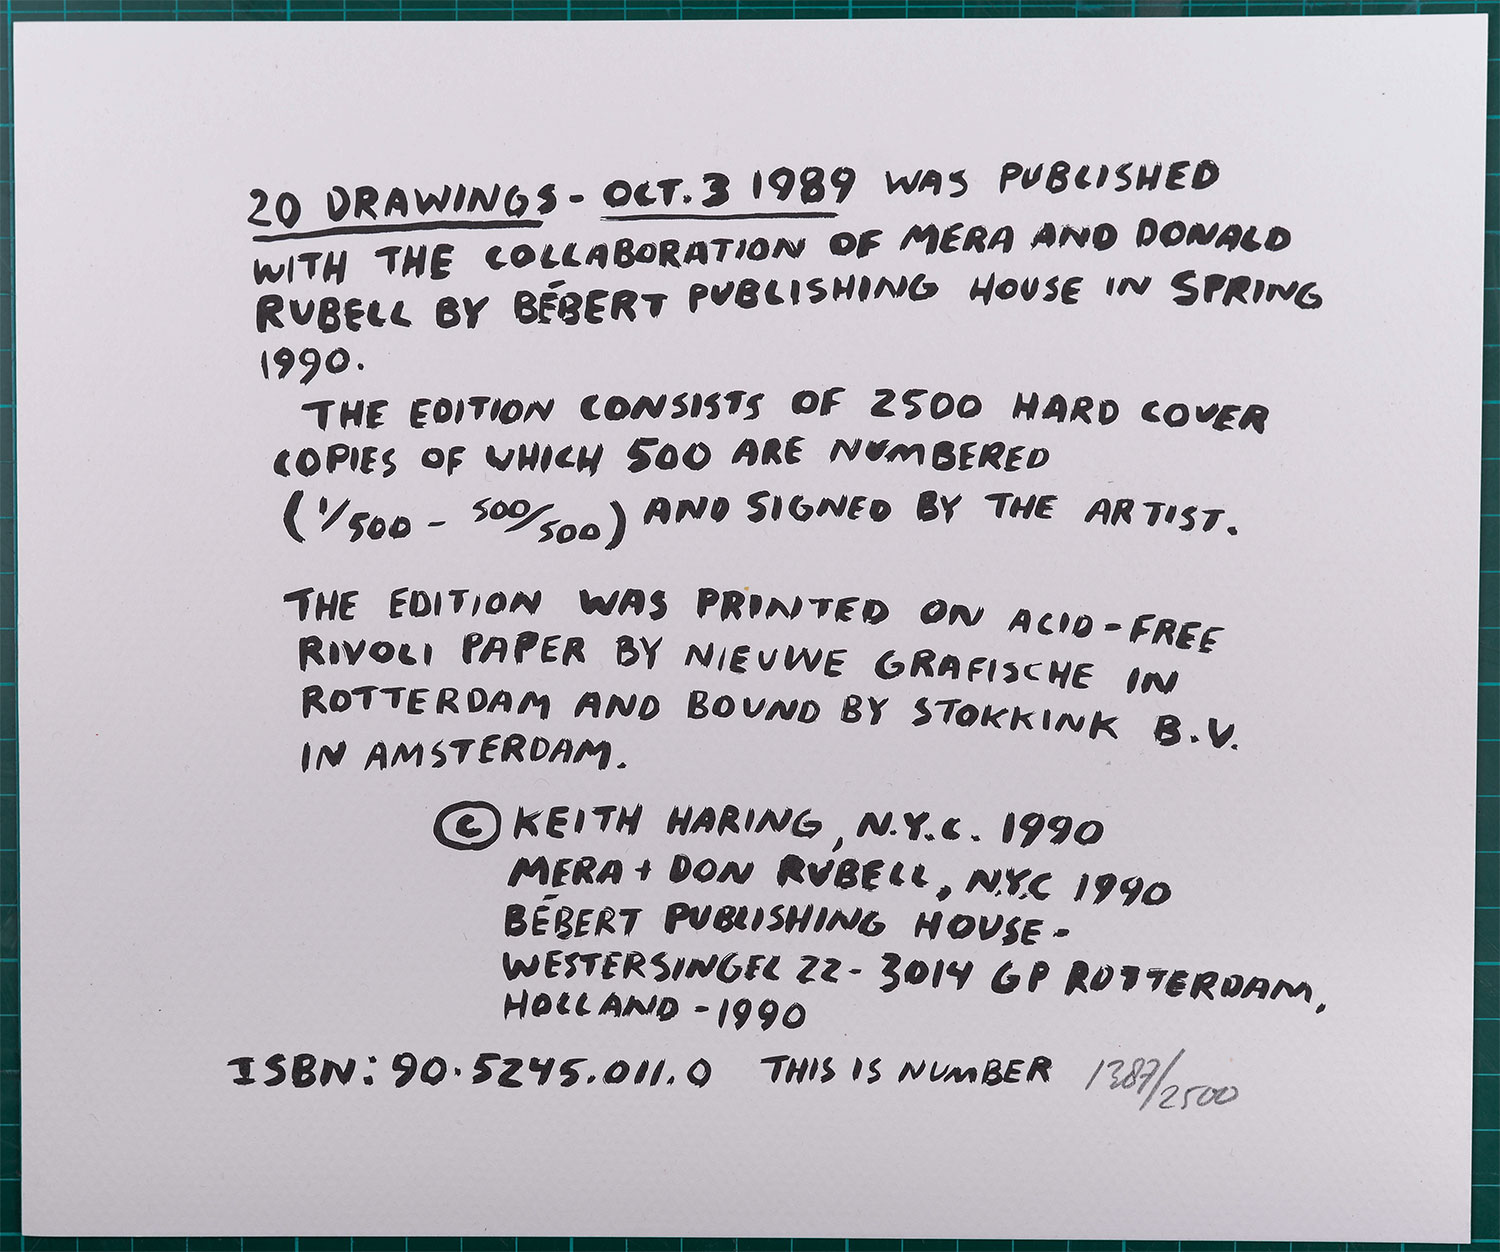 20 DRAWINGS - OCT. 3 1989 WAS PUBLISHED
WITH THE COLLABORATION OF MERA AND DONALD
RUBELL BY BÉBERT PUBLISHING HOUSE IN SPRING
1990.
THE EDITION CONSISTS OF 2500 HARD COVER
COPIES OF WHICH 500 ARE NUMBERED
(1/500 - 500/500) AND SIGNED BY THE ARTIST.
THE EDITION WAS PRINTED ON ACID-FREE
RIVOLI PAPER BY NIEUWE GRAFISCHE IN
ROTTERDAM AND BOUND BY STOKKINK B.V.
IN AMSTERDAM.
© KEITH HARING, N.Y.C. 1990
MERA + DON RUBELL, N.Y.C 1990
BÉBERT PUBLISHING HOUSE -
WESTERSINGEL 22 - 3014 GP ROTTERDAM,
HOLLAND - 1990
ISBN: 90.5245.011.0 THIS IS NUMBER 1387/2500